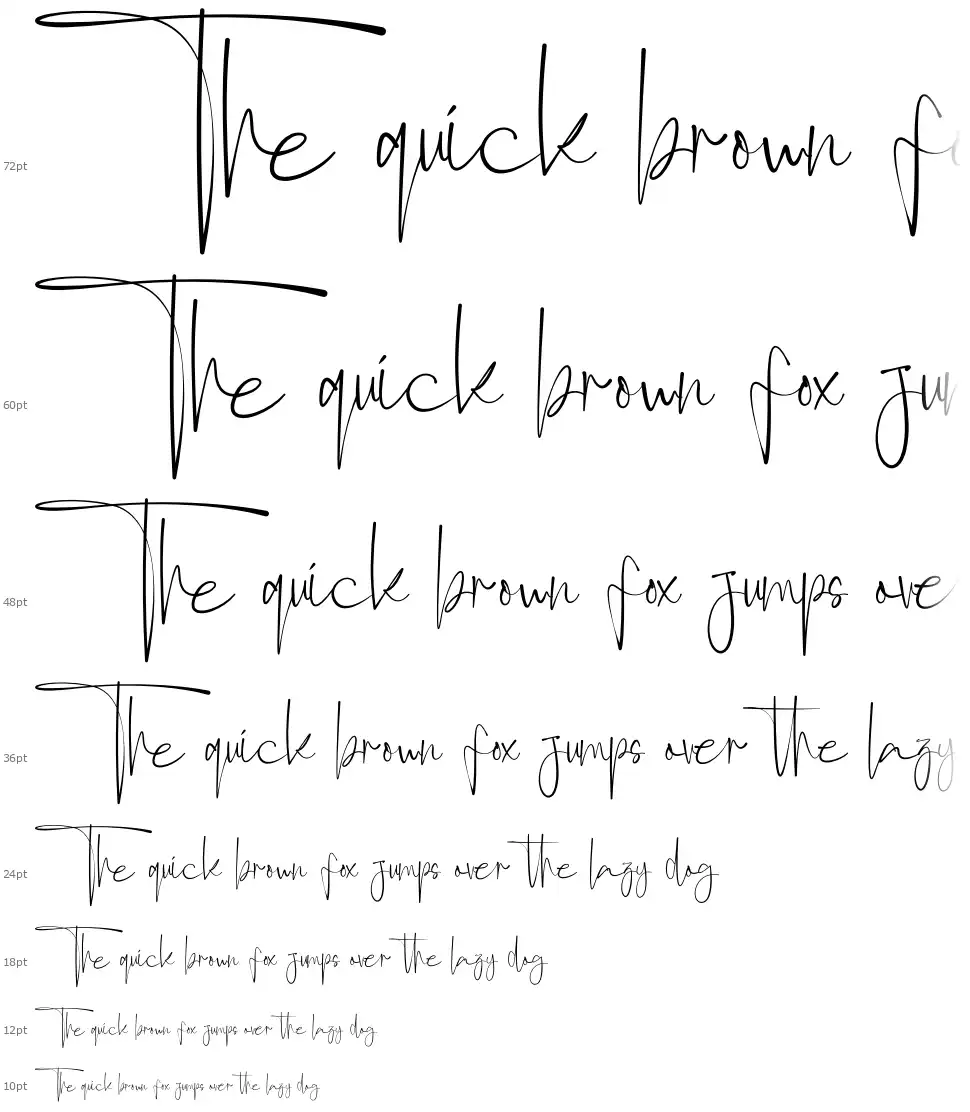 72pt The quick brown fo
60pt The quick brown fox jum
48pt The quick brown fox jumps ove
36pt The quick brown fox jumps over the lazy
24pt The quick brown fox jumps over the lazy dog
18pt The quick brown fox jumps over the lazy dog
12pt The quick brown fox jumps over the lazy dog
10pt The quick brown fox jumps over the lazy dog